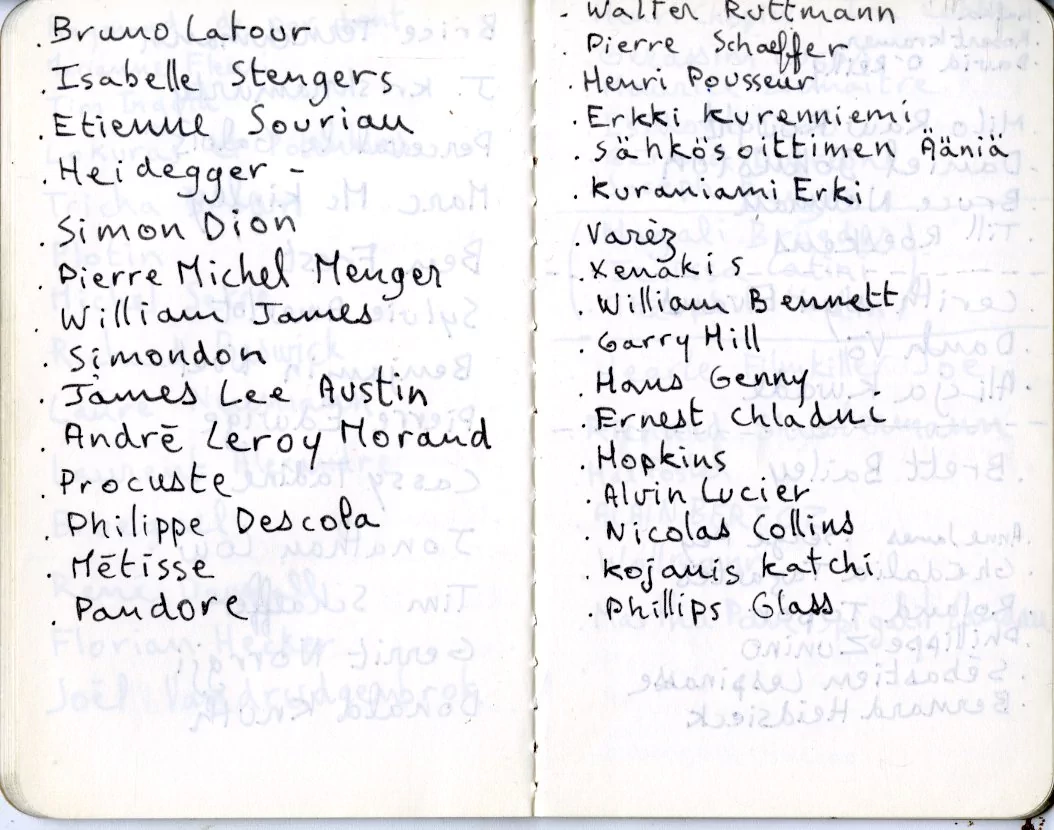 . Bruno Latour
. Isabelle Stengers
. Etienne Souriau
. Heidegger -
. Simon Dion
. Pierre Michel Menger
. William James
. Simondon
. James Lee Austin
. André Leroy Morand
. Procuste
. Philippe Descola
. Métisse
. Pandore
. Walter Ruttmann
. Pierre Schaeffer
. Henri Pousseur
. Erkki Kurenniemi
. Sähkösoittimen Ääniä
. Kuraniami Erki
. Varèz
. Xenakis
. William Bennett
. Garry Hill
. Hans Genny
. Ernest Chladni
. Hopkins
. Alvin Lucier
. Nicolas Collins
. Kojanis Katchi
. Phillips Glass